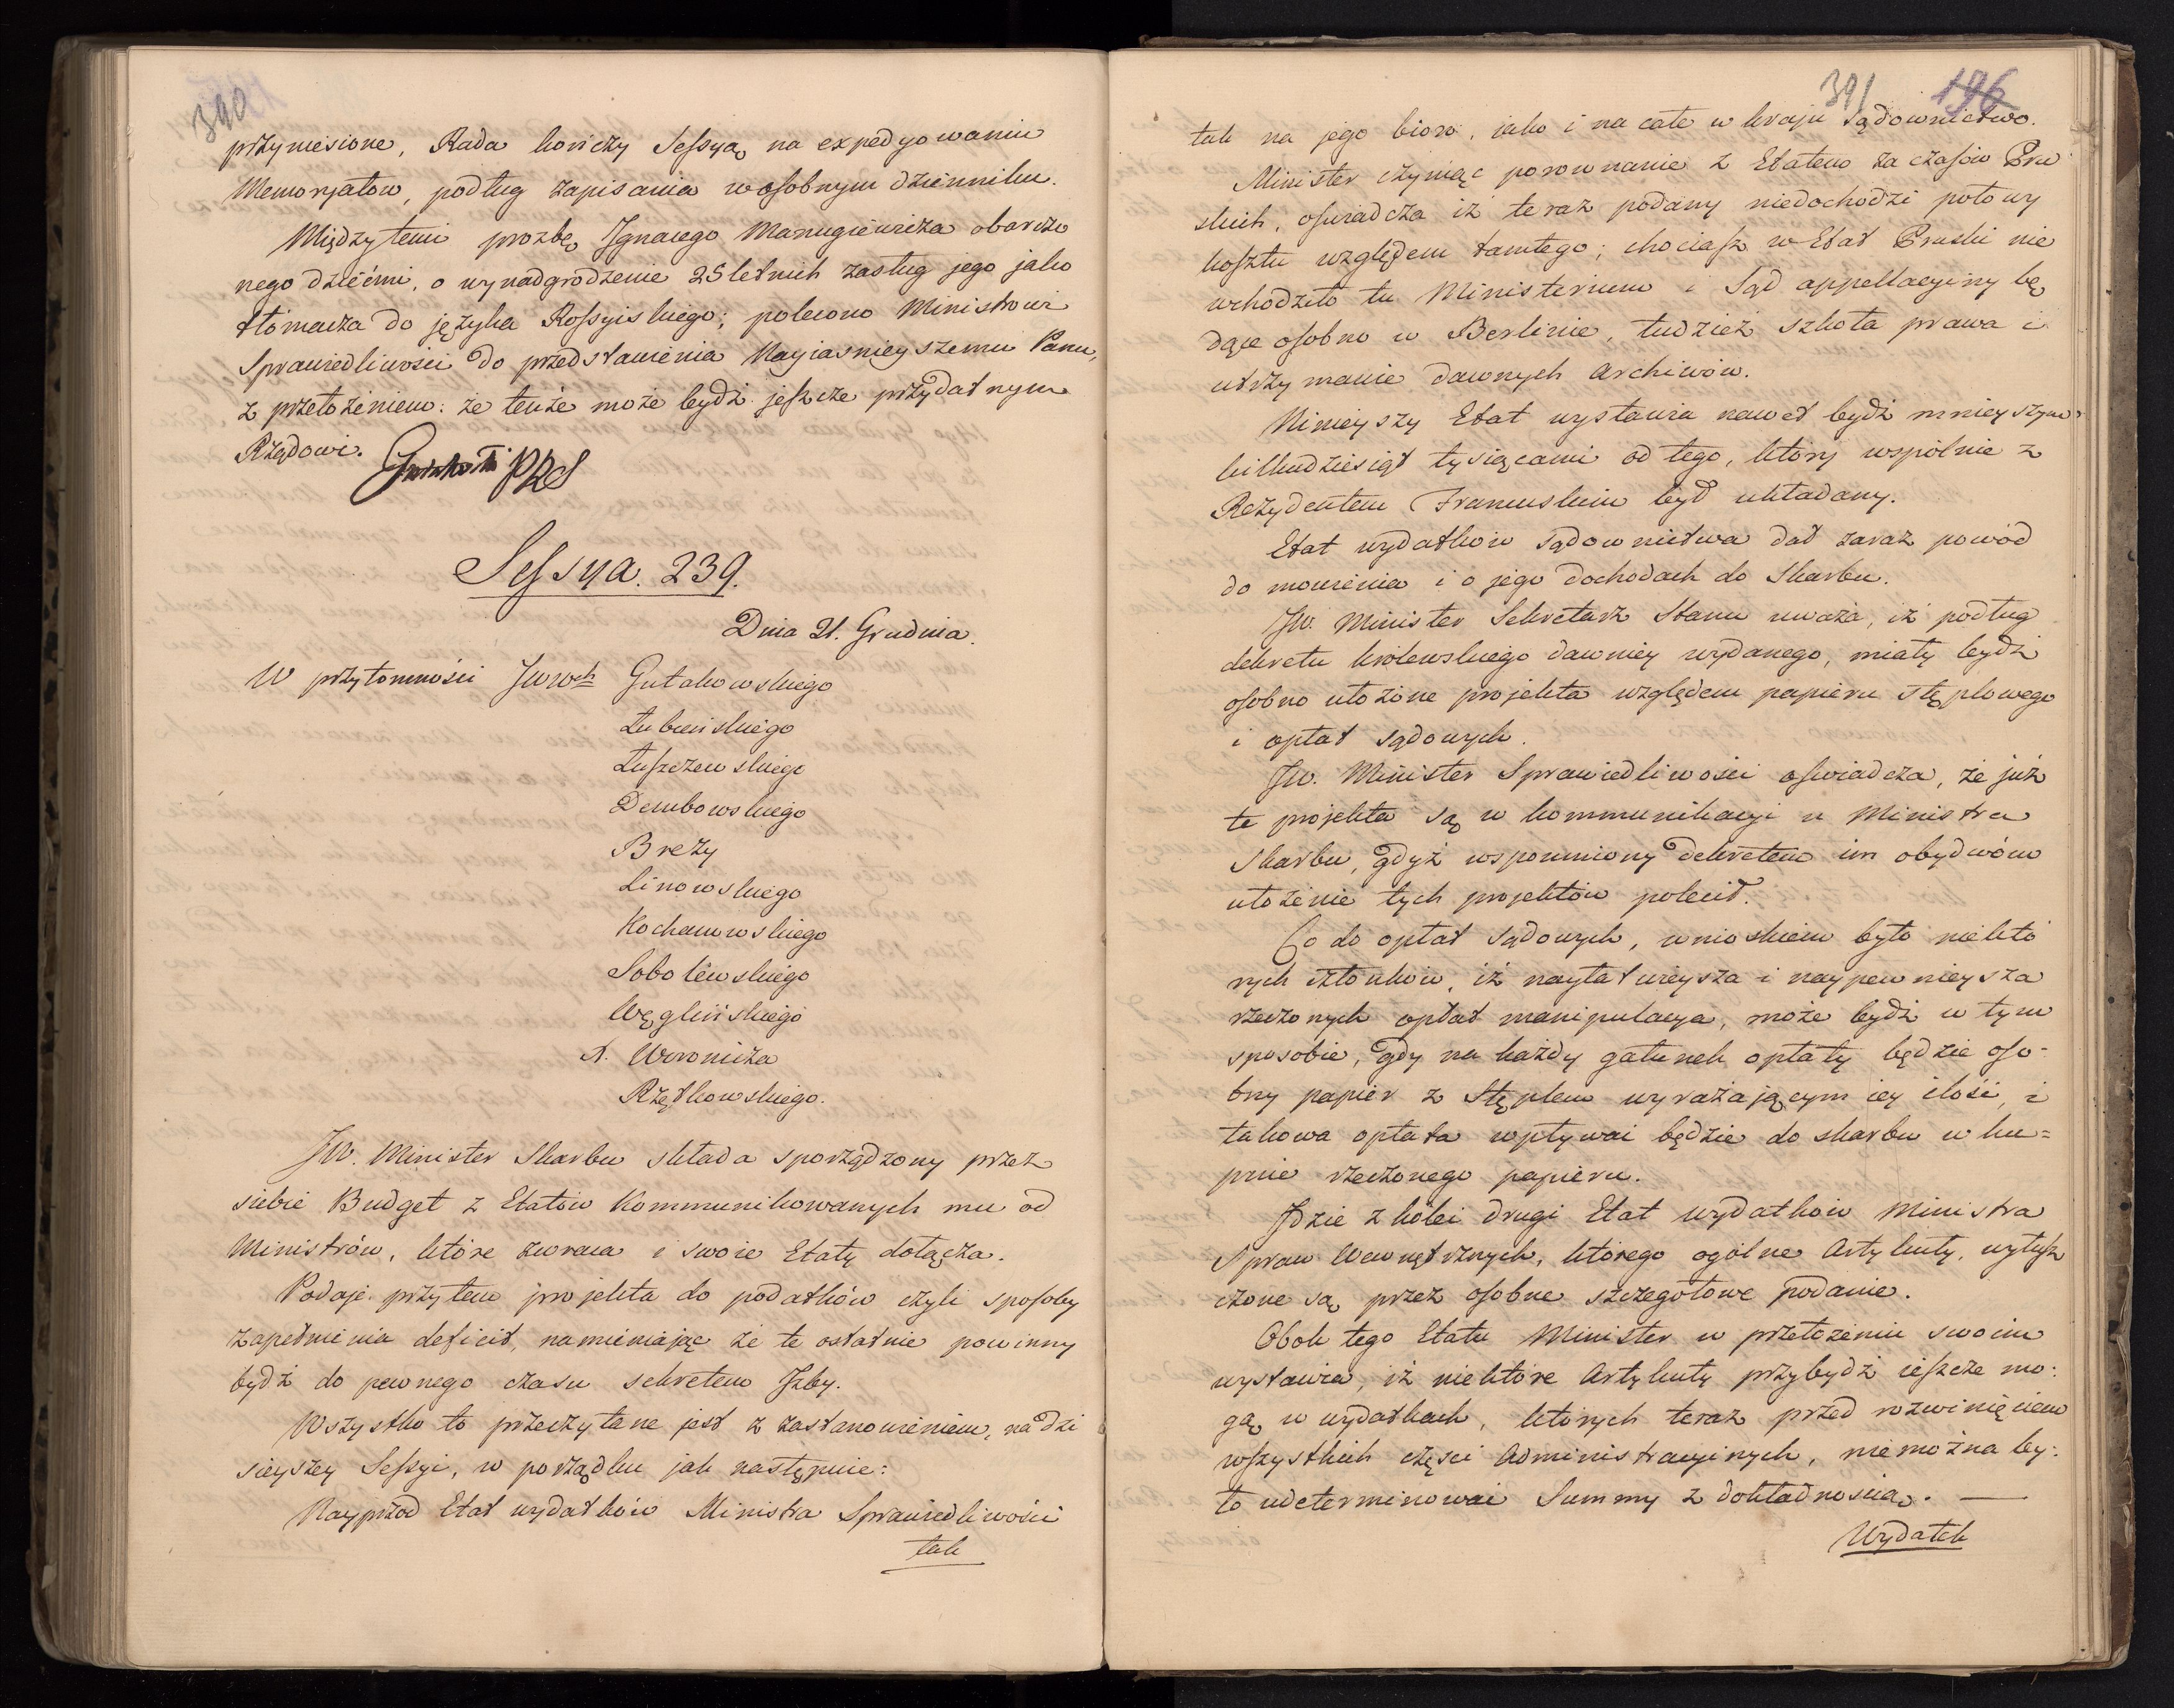 390
przyniesione, Rada kończy Sessyą na expedyowaniu
Memoryałow, podług zapisania w osobnym dzienniku.
Międzytemi prozbę Ignacego Manugiewicza obarczo
nego dziećmi, o wynadgrodzenie 25 letnich zasług jego jako
tłómacza do języka Rossyiskiego; polecono Ministrowi
Sprawiedliwości do przedstawienia Nayiasnieyszemu Panu,
z przełożeniem: że tenże może bydź jeszcze przydatnym
Rządowi.
Sessya. 239.
Dnia 21. Grudnia.
W przytomności JWWch Gutakowskiego
Łubieńskiego
Łuszczewskiego
Dembowskiego
Brezy
Linowskiego
Kochanowskiego
Sobolewskiego
Węglińskiego
X. Woronicza
Rzętkowskiego.
JW. Minister Skarbu składa sporządzony przez
siebie Budget z Etatów Kommunikowanych mu od
Ministrów, które zwraca i swoie Etaty dołącza.
Podaje przytem projekta do podatków czyli sposoby
zapełnienia deficit, namieniając że te ostatnie powinny
bydź do pewnego czasu sekretem Izby.
Wszystko to przeczytane jest z zastanowieniem, na dzi
sieyszey Sessyi, w porządku jak następuie:
Nayprzod Etat wydatków Ministra Sprawiedliwości
tak
391 196
tak na jego bioro, jako i na całe w kraju sądownictwo.
Minister czyniąc porownanie z Etatem za czasów Pru
skich, oswiadcza iż teraz podany niedochodzi połowy
kosztu względem tamtego; chociasz w Etat Pruski nie
wchodziło tu Ministerium i Sąd appellacyiny bę
dące osobno w Berlinie, tudzież szkoła prawa i
utrzymanie dawnych Archiwów.
Ninieyszy Etat wystawia nawet bydź mnieyszym
kilkudziesiąt tysiącami od tego, który wspólnie z
Rezydentem Francuskim był układany.
Etat wydatków sądownictwa dał zaraz powód
do mowienia i o jego dochodach do Skarbu.
JW. Minister Sekretarz Stanu uważa, iż podług
dekretu królewskiego dawniey wydanego, miały bydź
osobno ułożone projekta względem papieru stęplowego
i opłat sądowych.
JW. Minister Sprawiedliwości oswiadcza, że już
te projekta są w kommunikacyi u Ministra
Skarbu, gdyż wspomniony dekretem im obydwóm
ułożenie tych projektów polecił.
Co do opłat sądowych, wnioskiem było niektó
rych członków, iż nayłatwieysza i naypewnieysza
rzeczonych opłat manipulacya, może bydź w tym
sposobie, gdy na każdy gatunek opłaty będzie oso-
bny papier z Stęplem wyrażającym iey ilość, i
takowa opłata wpływać będzie do skarbu w ku=
pnie rzeczonego papieru.
Idzie z kolei drugi Etat wydatków Ministra
Spraw Wewnętrznych, którego ogólne Artykuły, wyłusz
czone są przez osobne szczegołowe podanie.
Obok tego Etatu Minister w przełożeniu swoim
wystawia, iż niektóre Artykuły przybydź ieszcze mo:
gą w wydatkach, których teraz przed rozwinięciem
wszystkich części Administracyinych, niemożna by:
ło udeterminować Summy z dokładnością. —
Wydatek